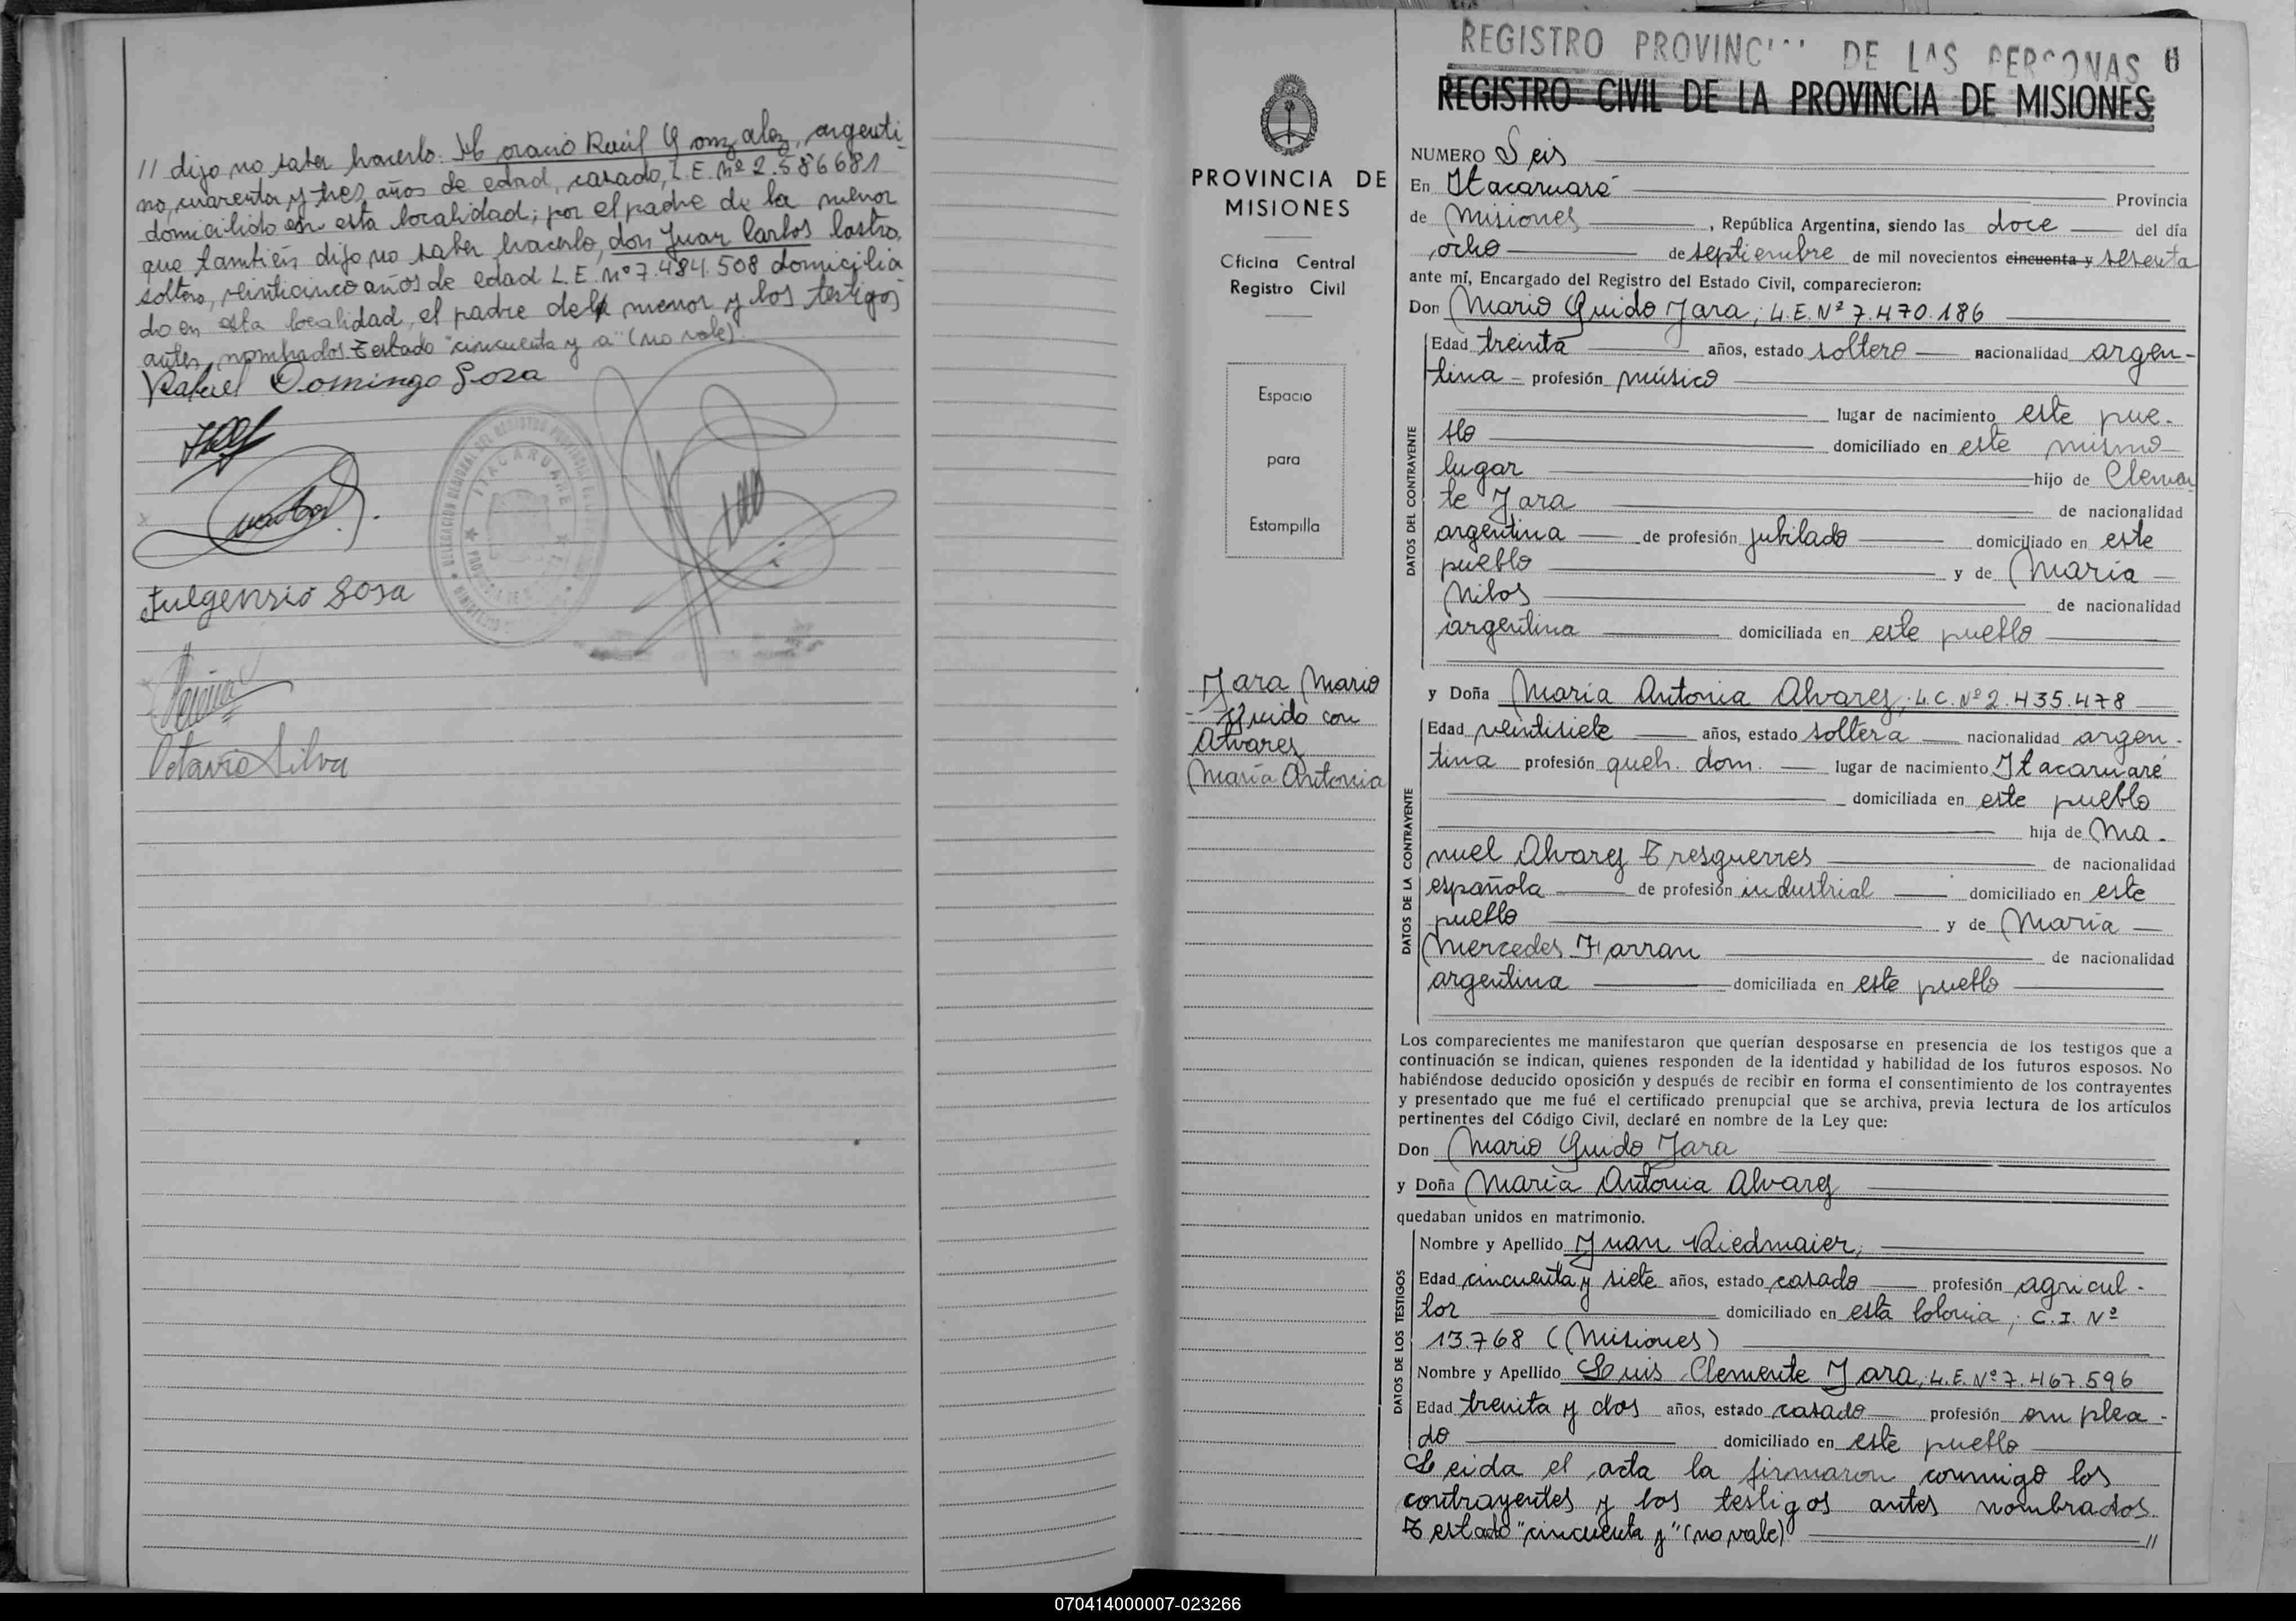 // dijo no saber hacerlo. Horacio Raúl Gonzalez, argenti-
no, cuarenta y tres años de edad, casado, L.E. Nº 2.586681
domicilido en esta localidad; por el padre de la menor
que tambien dijo no saber hacerlo, don Juan Carlos Castro,
soltero, veinticinco años de edad L.E. Nº 7.484.508 domicilia
do en esta localidad, el padre del menor y los testigos
antes nombrados. Testado "cincuenta y a" (no vale).
Rafael Domingo Sosa
Fulgensio Sosa
Octavio Silva
DELEGACION REGIONAL DEL REGISTRO PROVINCIAL
ITACARUARE
PROVINCIA DE
PROVINCIA DE
MISIONES
Oficina Central
Registro Civil
Espacio
para
Estampilla
Jara Mario
Guido con
Alvarez
María Antonia
REGISTRO PROVINC DE LAS PERSONAS 6
REGISTRO CIVIL DE LA PROVINCIA DE MISIONES
NUMERO Seis
En Itacaruaré Provincia
de Misiones, República Argentina, siendo las doce del día
ocho de septiembre de mil novecientos cincuenta y sesenta
ante mí, Encargado del Registro del Estado Civil, comparecieron:
Don Mario Guido Jara, L.E. Nº 7.470.186
DATOS DEL CONTRAYENTE
Edad treinta años, estado soltero nacionalidad argen-
tina - profesión músico
lugar de nacimiento este pue-
blo domiciliado en este mismo
lugar hijo de Clemen
te Jara de nacionalidad
argentina de profesión jubilado domiciliado en este
pueblo y de María
Nilos de nacionalidad
argentina domiciliada en este pueblo
y Doña María Antonia Alvarez, L.C. Nº 2.435.478
DATOS DE LA CONTRAYENTE
Edad veintisiete años, estado soltera nacionalidad argen-
tina profesión queh. dom. lugar de nacimiento Itacaruaré
domiciliada en este pueblo
hija de Ma-
nuel Alvarez Tresguerres de nacionalidad
española de profesión industrial domiciliado en este
pueblo y de María
Mercedes Farran de nacionalidad
argentina domiciliada en este pueblo
Los comparecientes me manifestaron que querían desposarse en presencia de los testigos que a
continuación se indican, quienes responden de la identidad y habilidad de los futuros esposos. No
habiéndose deducido oposición y después de recibir en forma el consentimiento de los contrayentes
y presentado que me fué el certificado prenupcial que se archiva, previa lectura de los artículos
pertinentes del Código Civil, declaré en nombre de la Ley que:
Don Mario Guido Jara
y Doña María Antonia Alvarez
quedaban unidos en matrimonio.
DATOS DE LOS TESTIGOS
Nombre y Apellido Juan Riedmaier,
Edad cincuenta y siete años, estado casado profesión agricul-
tor domiciliado en esta Colonia, C.I. Nº
13.768 (Misiones)
Nombre y Apellido Luis Clemente Jara, L.E. Nº 7.467.596
Edad treinta y dos años, estado casado profesión emplea-
do domiciliado en este pueblo
Leida el acta la firmaron conmigo los
contrayentes y los testigos antes nombrados
Testado "cincuenta y" (no vale) //
070414000007-023266